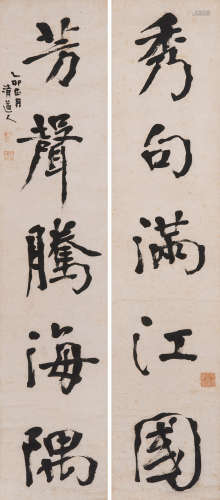 秀句滿江國
芳聲騰海隅
乙卯五月
清道人